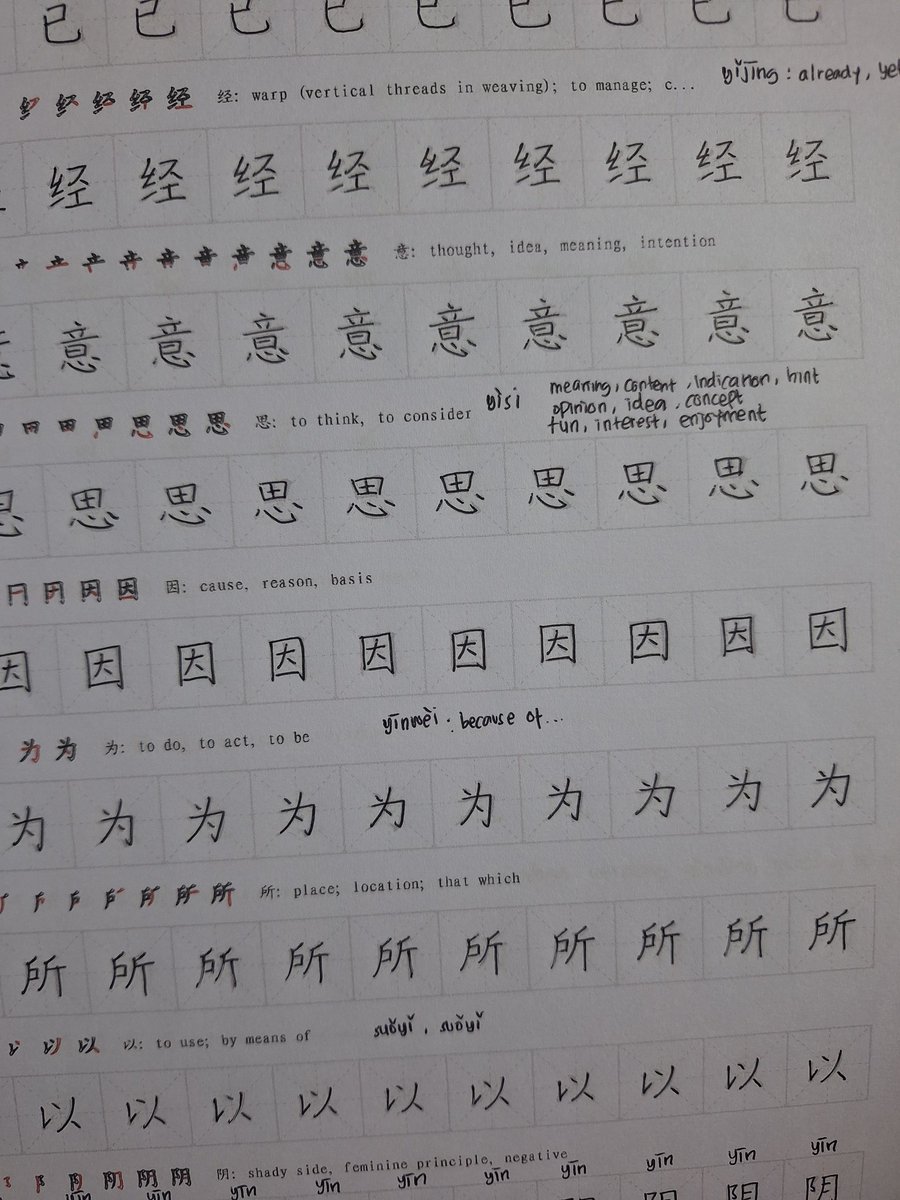 已 已 已 已 已 已 已 已 已
经: warp (vertical threads in weaving); to manage; c... yǐjīng: already, yet
经 经 经 经 经 经 经 经 经
意: thought, idea, meaning, intention
意 意 意 意 意 意 意 意 意 意
思: to think, to consider yìsi meaning, content, indication, hint
opinion, idea, concept
fun, interest, enjoyment
思 思 思 思 思 思 思 思 思 思
因: cause, reason, basis
因 因 因 因 因 因 因 因 因 因
为: to do, to act, to be yīnwèi: because of...
为 为 为 为 为 为 为 为 为 为
所: place; location; that which
所 所 所 所 所 所 所 所 所 所
以: to use; by means of suǒyǐ, suǒyǐ
以 以 以 以 以 以 以 以 以 以
阴: shady side, feminine principle, negative
yīn yīn yīn yīn yīn yīn yīn yīn yīn
阴 阴 阴